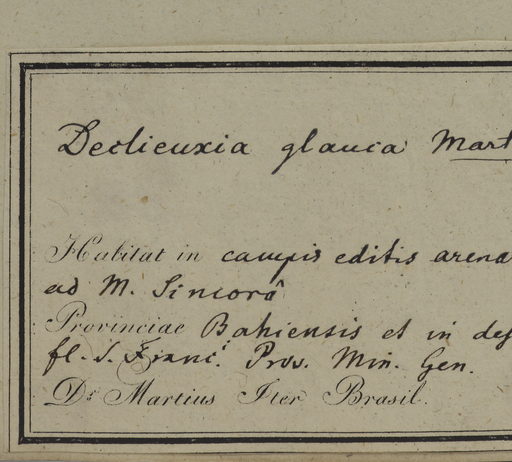 Declieuxia glauca Mart
Habitat in campis editis arena
ad M. Sincorâ
Provinciae Bahiensis et in des
fl. S. Franc. Prov. Min. Gen.
Dr. Martius Iter Brasil.